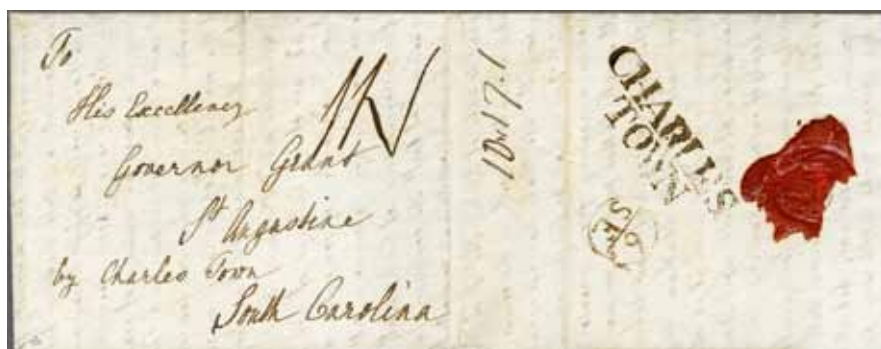 To
His Excellency
Governor Grant
St Augustine
by Charles Town
South Carolina
CHARLES
TOWN